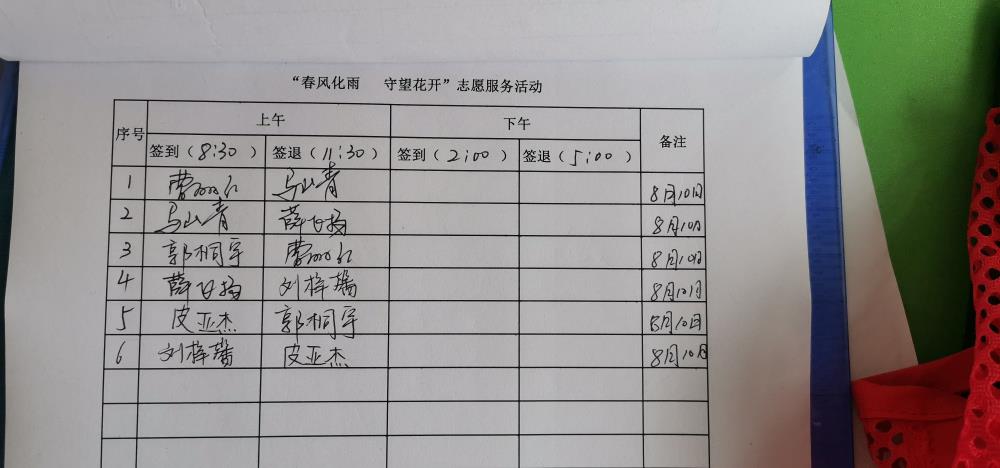 “春风化雨 守望花开”志愿服务活动
序号 上午 下午 备注
签到(8:30) 签退(11:30) 签到(2:00) 签退(5:00)
1 马山青 8月10日
2 马山青 薛 扬 8月10日
3 郭桐宇 8月10日
4 薛 扬 刘梓馨 8月10日
5 皮亚杰 郭桐宇 8月10日
6 刘梓馨 皮亚杰 8月10日